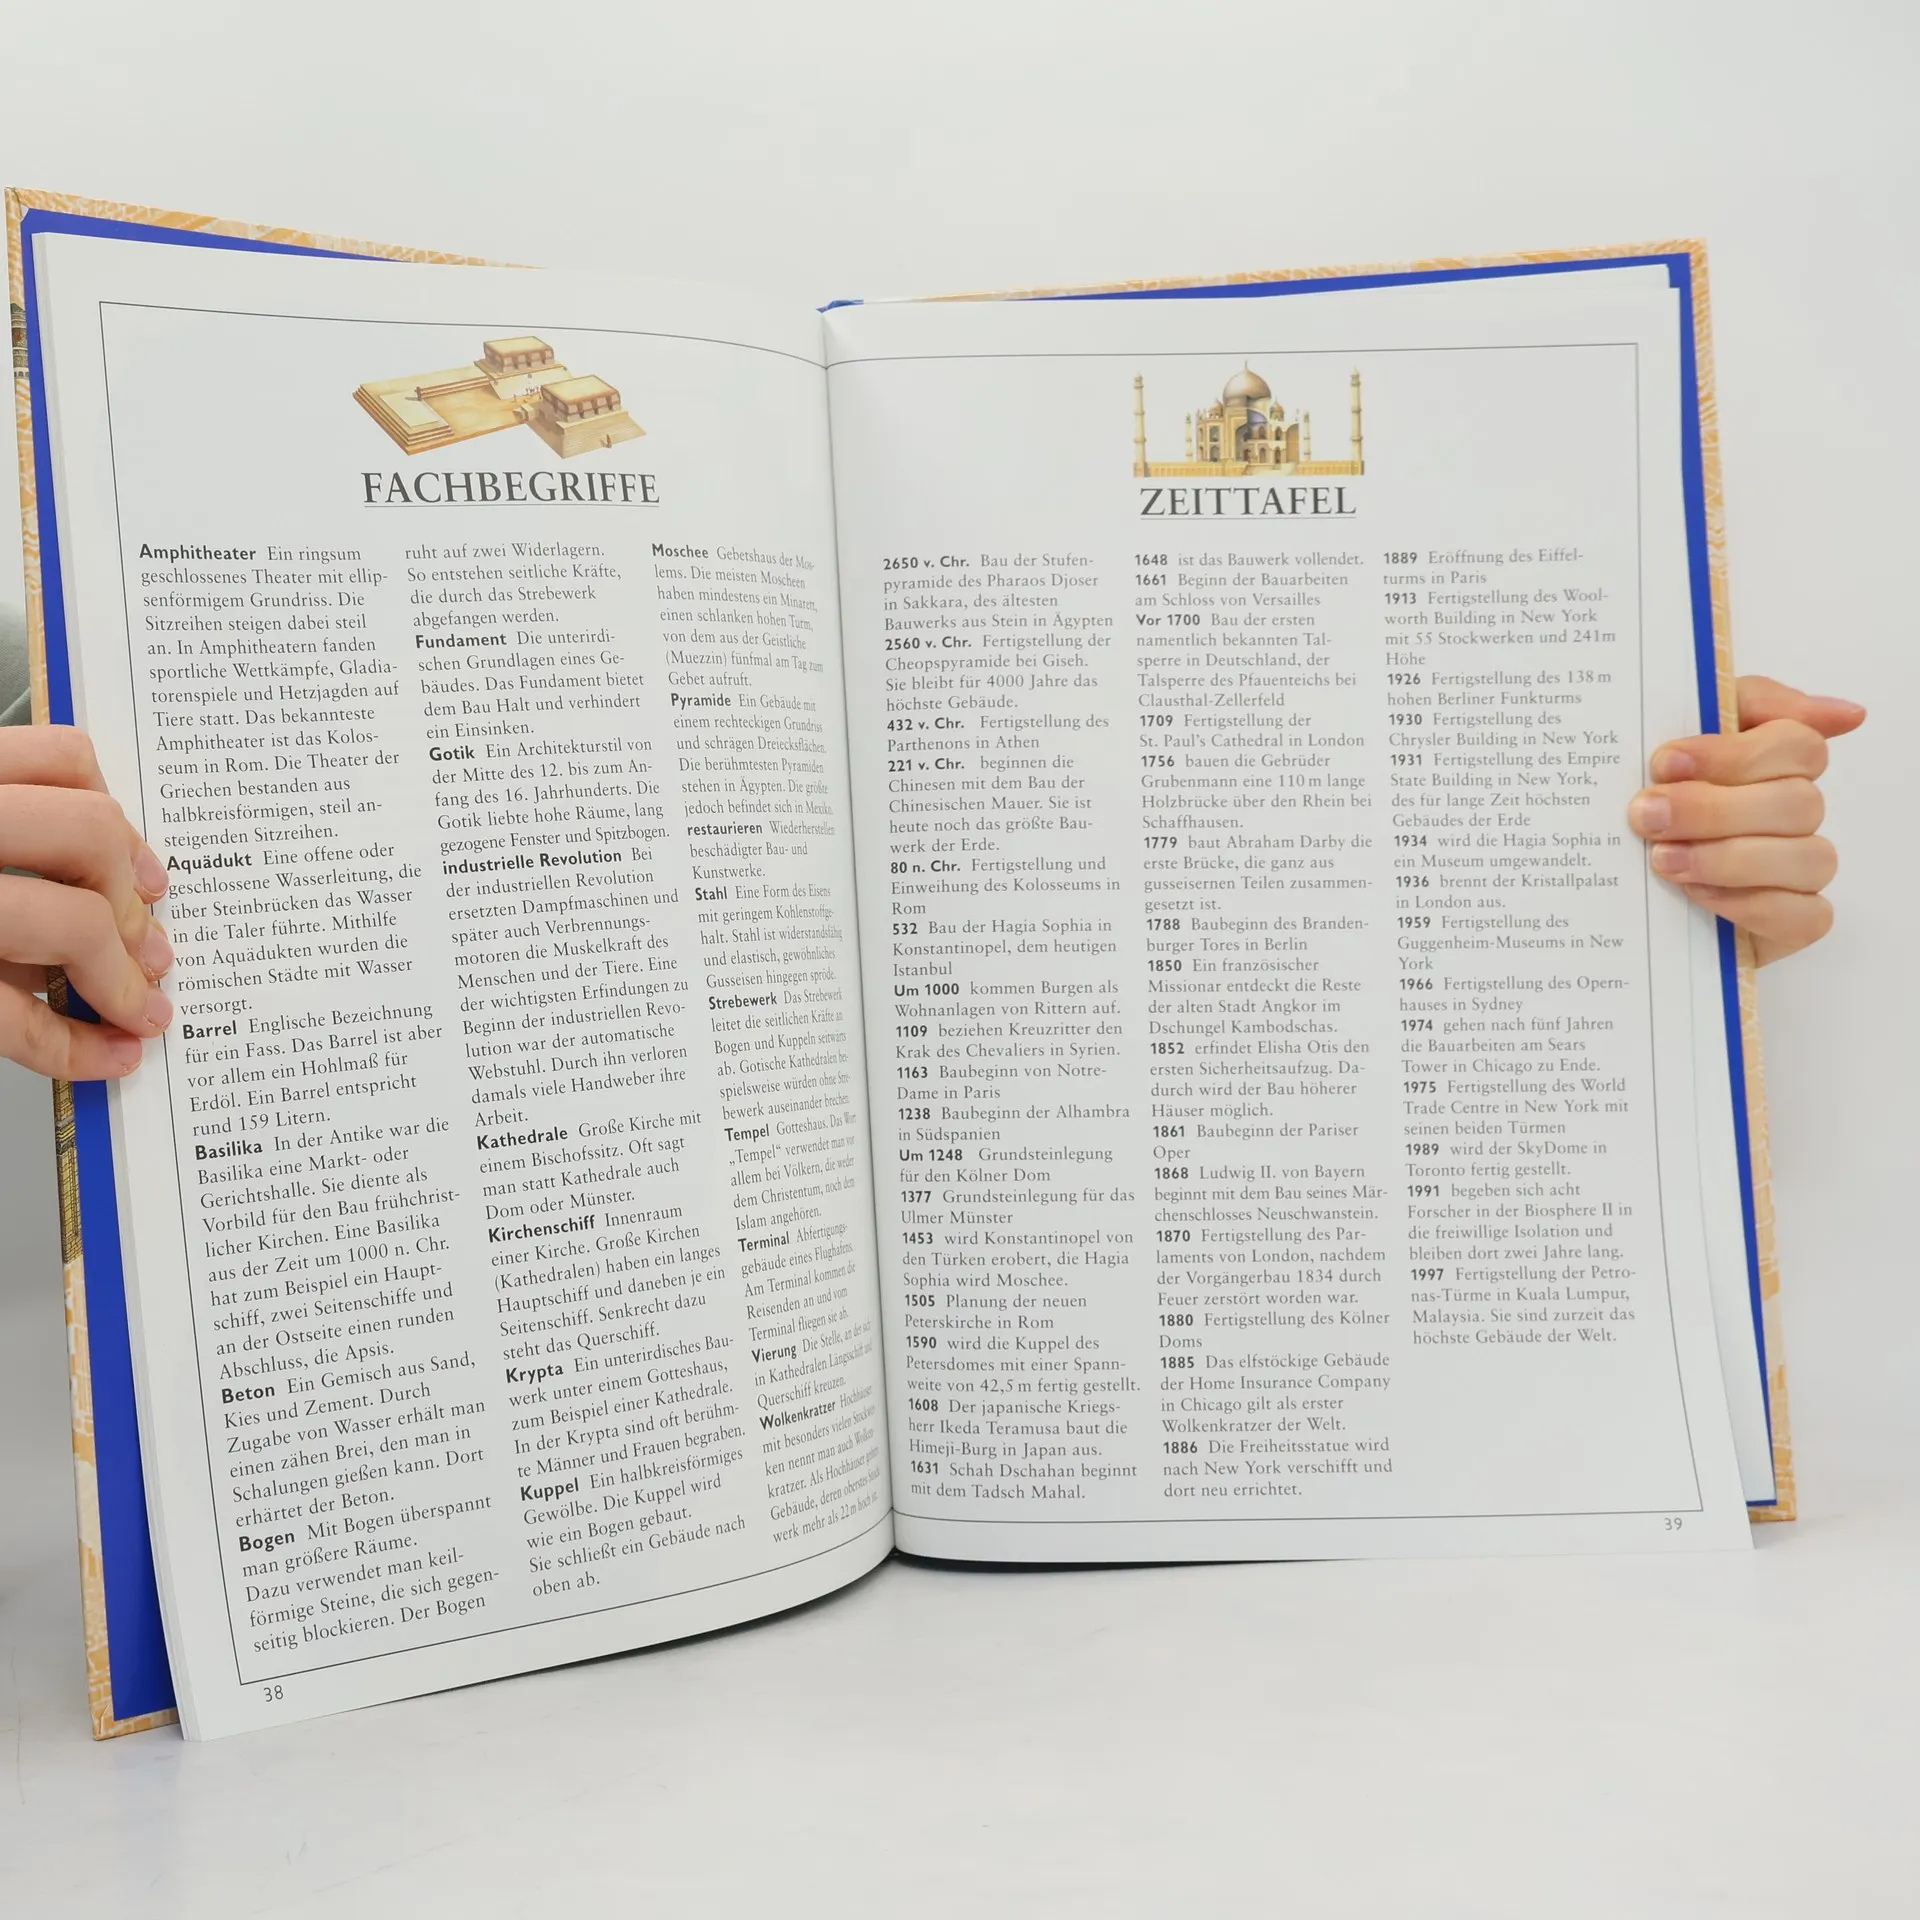 FACHBEGRIFFE
Amphitheater Ein ringsum
geschlossenes Theater mit ellip-
senförmigem Grundriss. Die
Sitzreihen steigen dabei steil
an. In Amphitheatern fanden
sportliche Wettkämpfe, Gladia-
torenspiele und Hetzjagden auf
Tiere statt. Das bekannteste
Amphitheater ist das Kolos-
seum in Rom. Die Theater der
Griechen bestanden aus
halbkreisförmigen, steil an-
steigenden Sitzreihen.
Aquädukt Eine offene oder
geschlossene Wasserleitung, die
über Steinbrücken das Wasser
in die Taler führte. Mithilfe
von Aquädukten wurden die
römischen Städte mit Wasser
versorgt.
Barrel Englische Bezeichnung
für ein Fass. Das Barrel ist aber
vor allem ein Hohlmaß für
Erdöl. Ein Barrel entspricht
rund 159 Litern.
Basilika In der Antike war die
Basilika eine Markt- oder
Gerichtshalle. Sie diente als
Vorbild für den Bau frühchrist-
licher Kirchen. Eine Basilika
aus der Zeit um 1000 n. Chr.
hat zum Beispiel ein Haupt-
schiff, zwei Seitenschiffe und
an der Ostseite einen runden
Abschluss, die Apsis.
Beton Ein Gemisch aus Sand,
Kies und Zement. Durch
Zugabe von Wasser erhält man
einen zähen Brei, den man in
Schalungen gießen kann. Dort
erhärtet der Beton.
Bogen Mit Bogen überspannt
man größere Räume.
Dazu verwendet man keil-
förmige Steine, die sich gegen-
seitig blockieren. Der Bogen
ruht auf zwei Widerlagern.
So entstehen seitliche Kräfte,
die durch das Strebewerk
abgefangen werden.
Fundament Die unterirdi-
schen Grundlagen eines Ge-
bäudes. Das Fundament bietet
dem Bau Halt und verhindert
ein Einsinken.
Gotik Ein Architekturstil von
der Mitte des 12. bis zum An-
fang des 16. Jahrhunderts. Die
Gotik liebte hohe Räume, lang
gezogene Fenster und Spitzbogen.
industrielle Revolution Bei
der industriellen Revolution
ersetzten Dampfmaschinen und
später auch Verbrennungs-
motoren die Muskelkraft des
Menschen und der Tiere. Eine
der wichtigsten Erfindungen zu
Beginn der industriellen Revo-
lution war der automatische
Webstuhl. Durch ihn verloren
damals viele Handweber ihre
Arbeit.
Kathedrale Große Kirche mit
einem Bischofssitz. Oft sagt
man statt Kathedrale auch
Dom oder Münster.
Kirchenschiff Innenraum
einer Kirche. Große Kirchen
(Kathedralen) haben ein langes
Hauptschiff und daneben je ein
Seitenschiff. Senkrecht dazu
steht das Querschiff.
Krypta Ein unterirdisches Bau-
werk unter einem Gotteshaus,
zum Beispiel einer Kathedrale.
In der Krypta sind oft berühm-
te Männer und Frauen begraben.
Kuppel Ein halbkreisförmiges
Gewölbe. Die Kuppel wird
wie ein Bogen gebaut.
Sie schließt ein Gebäude nach
oben ab.
Moschee Gebetshaus der Mos-
lems. Die meisten Moscheen
haben mindestens ein Minarett,
einen schlanken hohen Turm,
von dem aus der Geistliche
(Muezzin) fünfmal am Tag zum
Gebet aufruft.
Pyramide Ein Gebäude mit
einem rechteckigen Grundriss
und schrägen Dreiecksflächen.
Die berühmtesten Pyramiden
stehen in Ägypten. Die größte
jedoch befindet sich in Mexiko.
restaurieren Wiederherstellen
beschädigter Bau- und
Kunstwerke.
Stahl Eine Form des Eisens
mit geringem Kohlenstoffge-
halt. Stahl ist widerstandsfähig
und elastisch, gewöhnliches
Gusseisen hingegen spröde.
Strebewerk Das Strebewerk
leitet die seitlichen Kräfte an
Bogen und Kuppeln seitwärts
ab. Gotische Kathedralen bei-
spielsweise würden ohne Stre-
bewerk auseinander brechen.
Tempel Gotteshaus. Das Wort
„Tempel“ verwendet man vor
allem bei Völkern, die weder
dem Christentum, noch dem
Islam angehören.
Terminal Abfertigungs-
gebäude eines Flughafens.
Am Terminal kommen die
Reisenden an und vom
Terminal fliegen sie ab.
Vierung Die Stelle, an der sich
in Kathedralen Längsschiff und
Querschiff kreuzen.
Wolkenkratzer Hochhäuser
mit besonders vielen Stockwer-
ken nennt man auch Wolken-
kratzer. Als Hochhäuser gelten
Gebäude, deren oberstes Stock-
werk mehr als 22 m hoch ist.
38
ZEITTAFEL
2650 v. Chr. Bau der Stufen-
pyramide des Pharaos Djoser
in Sakkara, des ältesten
Bauwerks aus Stein in Ägypten
2560 v. Chr. Fertigstellung der
Cheopspyramide bei Giseh.
Sie bleibt für 4000 Jahre das
höchste Gebäude.
432 v. Chr. Fertigstellung des
Parthenons in Athen
221 v. Chr. beginnen die
Chinesen mit dem Bau der
Chinesischen Mauer. Sie ist
heute noch das größte Bau-
werk der Erde.
80 n. Chr. Fertigstellung und
Einweihung des Kolosseums in
Rom
532 Bau der Hagia Sophia in
Konstantinopel, dem heutigen
Istanbul
Um 1000 kommen Burgen als
Wohnanlagen von Rittern auf.
1109 beziehen Kreuzritter den
Krak des Chevaliers in Syrien.
1163 Baubeginn von Notre-
Dame in Paris
1238 Baubeginn der Alhambra
in Südspanien
Um 1248 Grundsteinlegung
für den Kölner Dom
1377 Grundsteinlegung für das
Ulmer Münster
1453 wird Konstantinopel von
den Türken erobert, die Hagia
Sophia wird Moschee.
1505 Planung der neuen
Peterskirche in Rom
1590 wird die Kuppel des
Petersdomes mit einer Spann-
weite von 42,5 m fertig gestellt.
1608 Der japanische Kriegs-
herr Ikeda Teramusa baut die
Himeji-Burg in Japan aus.
1631 Schah Dschahan beginnt
mit dem Tadsch Mahal.
1648 ist das Bauwerk vollendet.
1661 Beginn der Bauarbeiten
am Schloss von Versailles
Vor 1700 Bau der ersten
namentlich bekannten Tal-
sperre in Deutschland, der
Talsperre des Pfauenteichs bei
Clausthal-Zellerfeld
1709 Fertigstellung der
St. Paul's Cathedral in London
1756 bauen die Gebrüder
Grubenmann eine 110 m lange
Holzbrücke über den Rhein bei
Schaffhausen.
1779 baut Abraham Darby die
erste Brücke, die ganz aus
gusseisernen Teilen zusammen-
gesetzt ist.
1788 Baubeginn des Branden-
burger Tores in Berlin
1850 Ein französischer
Missionar entdeckt die Reste
der alten Stadt Angkor im
Dschungel Kambodschas.
1852 erfindet Elisha Otis den
ersten Sicherheitsaufzug. Da-
durch wird der Bau höherer
Häuser möglich.
1861 Baubeginn der Pariser
Oper
1868 Ludwig II. von Bayern
beginnt mit dem Bau seines Mär-
chenschlosses Neuschwanstein.
1870 Fertigstellung des Par-
laments von London, nachdem
der Vorgängerbau 1834 durch
Feuer zerstört worden war.
1880 Fertigstellung des Kölner
Doms
1885 Das elfstöckige Gebäude
der Home Insurance Company
in Chicago gilt als erster
Wolkenkratzer der Welt.
1886 Die Freiheitsstatue wird
nach New York verschifft und
dort neu errichtet.
1889 Eröffnung des Eiffel-
turms in Paris
1913 Fertigstellung des Wool-
worth Building in New York
mit 55 Stockwerken und 241m
Höhe
1926 Fertigstellung des 138 m
hohen Berliner Funkturms
1930 Fertigstellung des
Chrysler Building in New York
1931 Fertigstellung des Empire
State Building in New York,
des für lange Zeit höchsten
Gebäude der Erde
1934 wird die Hagia Sophia in
ein Museum umgewandelt.
1936 brennt der Kristallpalast
in London aus.
1959 Fertigstellung des
Guggenheim-Museums in New
York
1966 Fertigstellung des Opern-
hauses in Sydney
1974 gehen nach fünf Jahren
die Bauarbeiten am Sears
Tower in Chicago zu Ende.
1975 Fertigstellung des World
Trade Centre in New York mit
seinen beiden Türmen
1989 wird der SkyDome in
Toronto fertig gestellt.
1991 begeben sich acht
Forscher in der Biosphere II in
die freiwillige Isolation und
bleiben dort zwei Jahre lang.
1997 Fertigstellung der Petro-
nas-Türme in Kuala Lumpur,
Malaysia. Sie sind zurzeit das
höchste Gebäude der Welt.
39